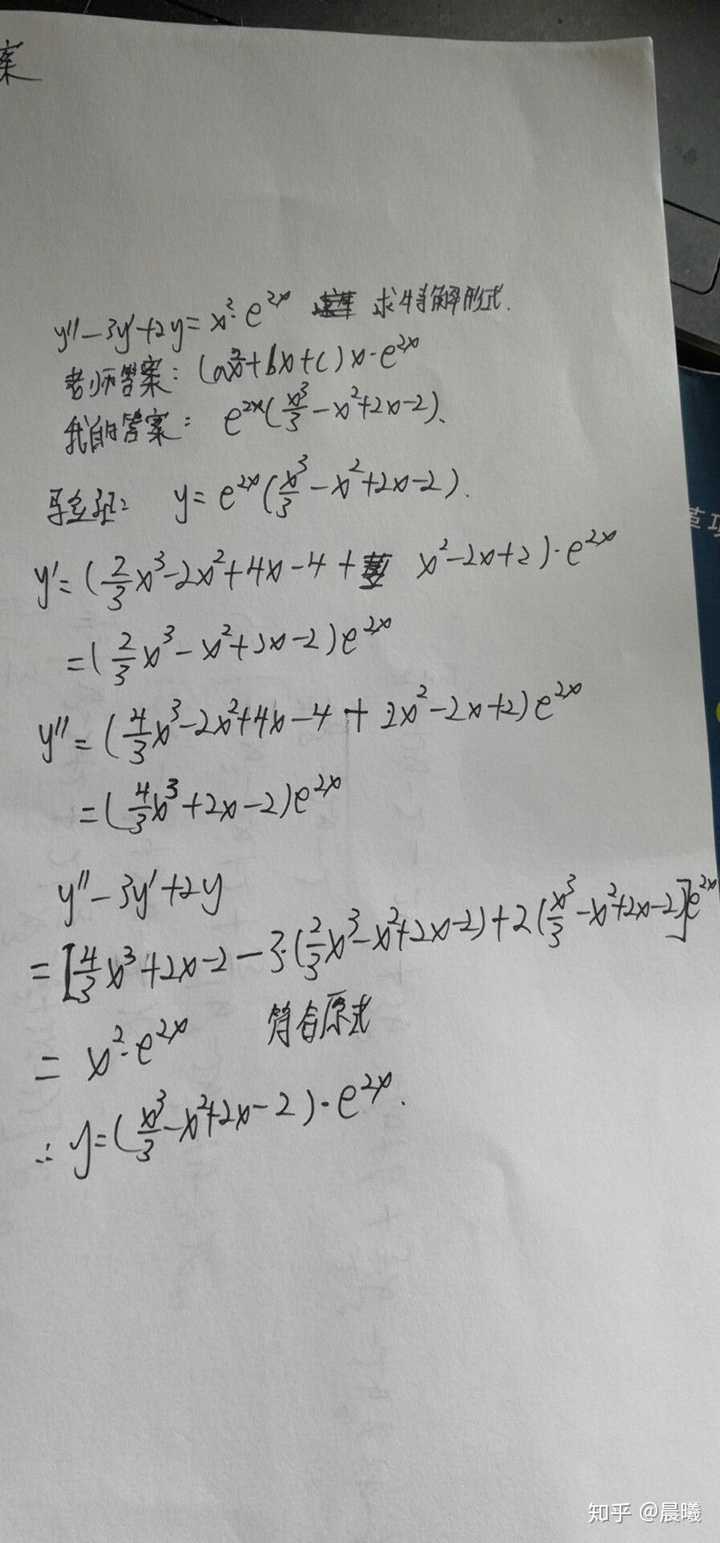 案
y''-3y'+2y=x²·e^{2x} 求特解形式.
老师答案: (ax²+bx+c)x·e^{2x}
我的答案: e^{2x}(x³/3-x²+2x-2).
验证: y=e^{2x}(x³/3-x²+2x-2).
y'=(2/3x³-2x²+4x-4+x²-2x+2)·e^{2x}
=(2/3x³-x²+2x-2)e^{2x}
y''=(4/3x³-2x²+4x-4+2x²-2x+2)e^{2x}
=(4/3x³+2x-2)e^{2x}
y''-3y'+2y
=[4/3x³+2x-2-3·(2/3x³-x²+2x-2)+2(x³/3-x²+2x-2)]e^{2x}
=x²·e^{2x} 符合原式
∴y=(x³/3-x²+2x-2)·e^{2x}.
知乎 @晨曦